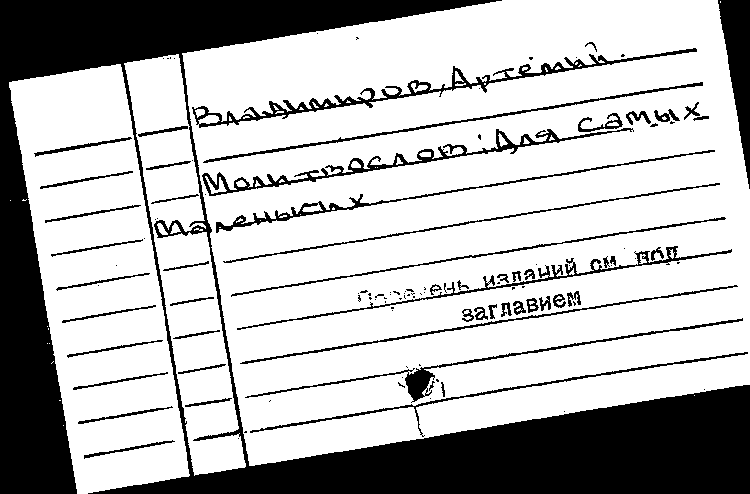 Владимиров, Артемий.
Молитвослов: Для самых
маленьких.
Перечень изданий см. под
заглавием